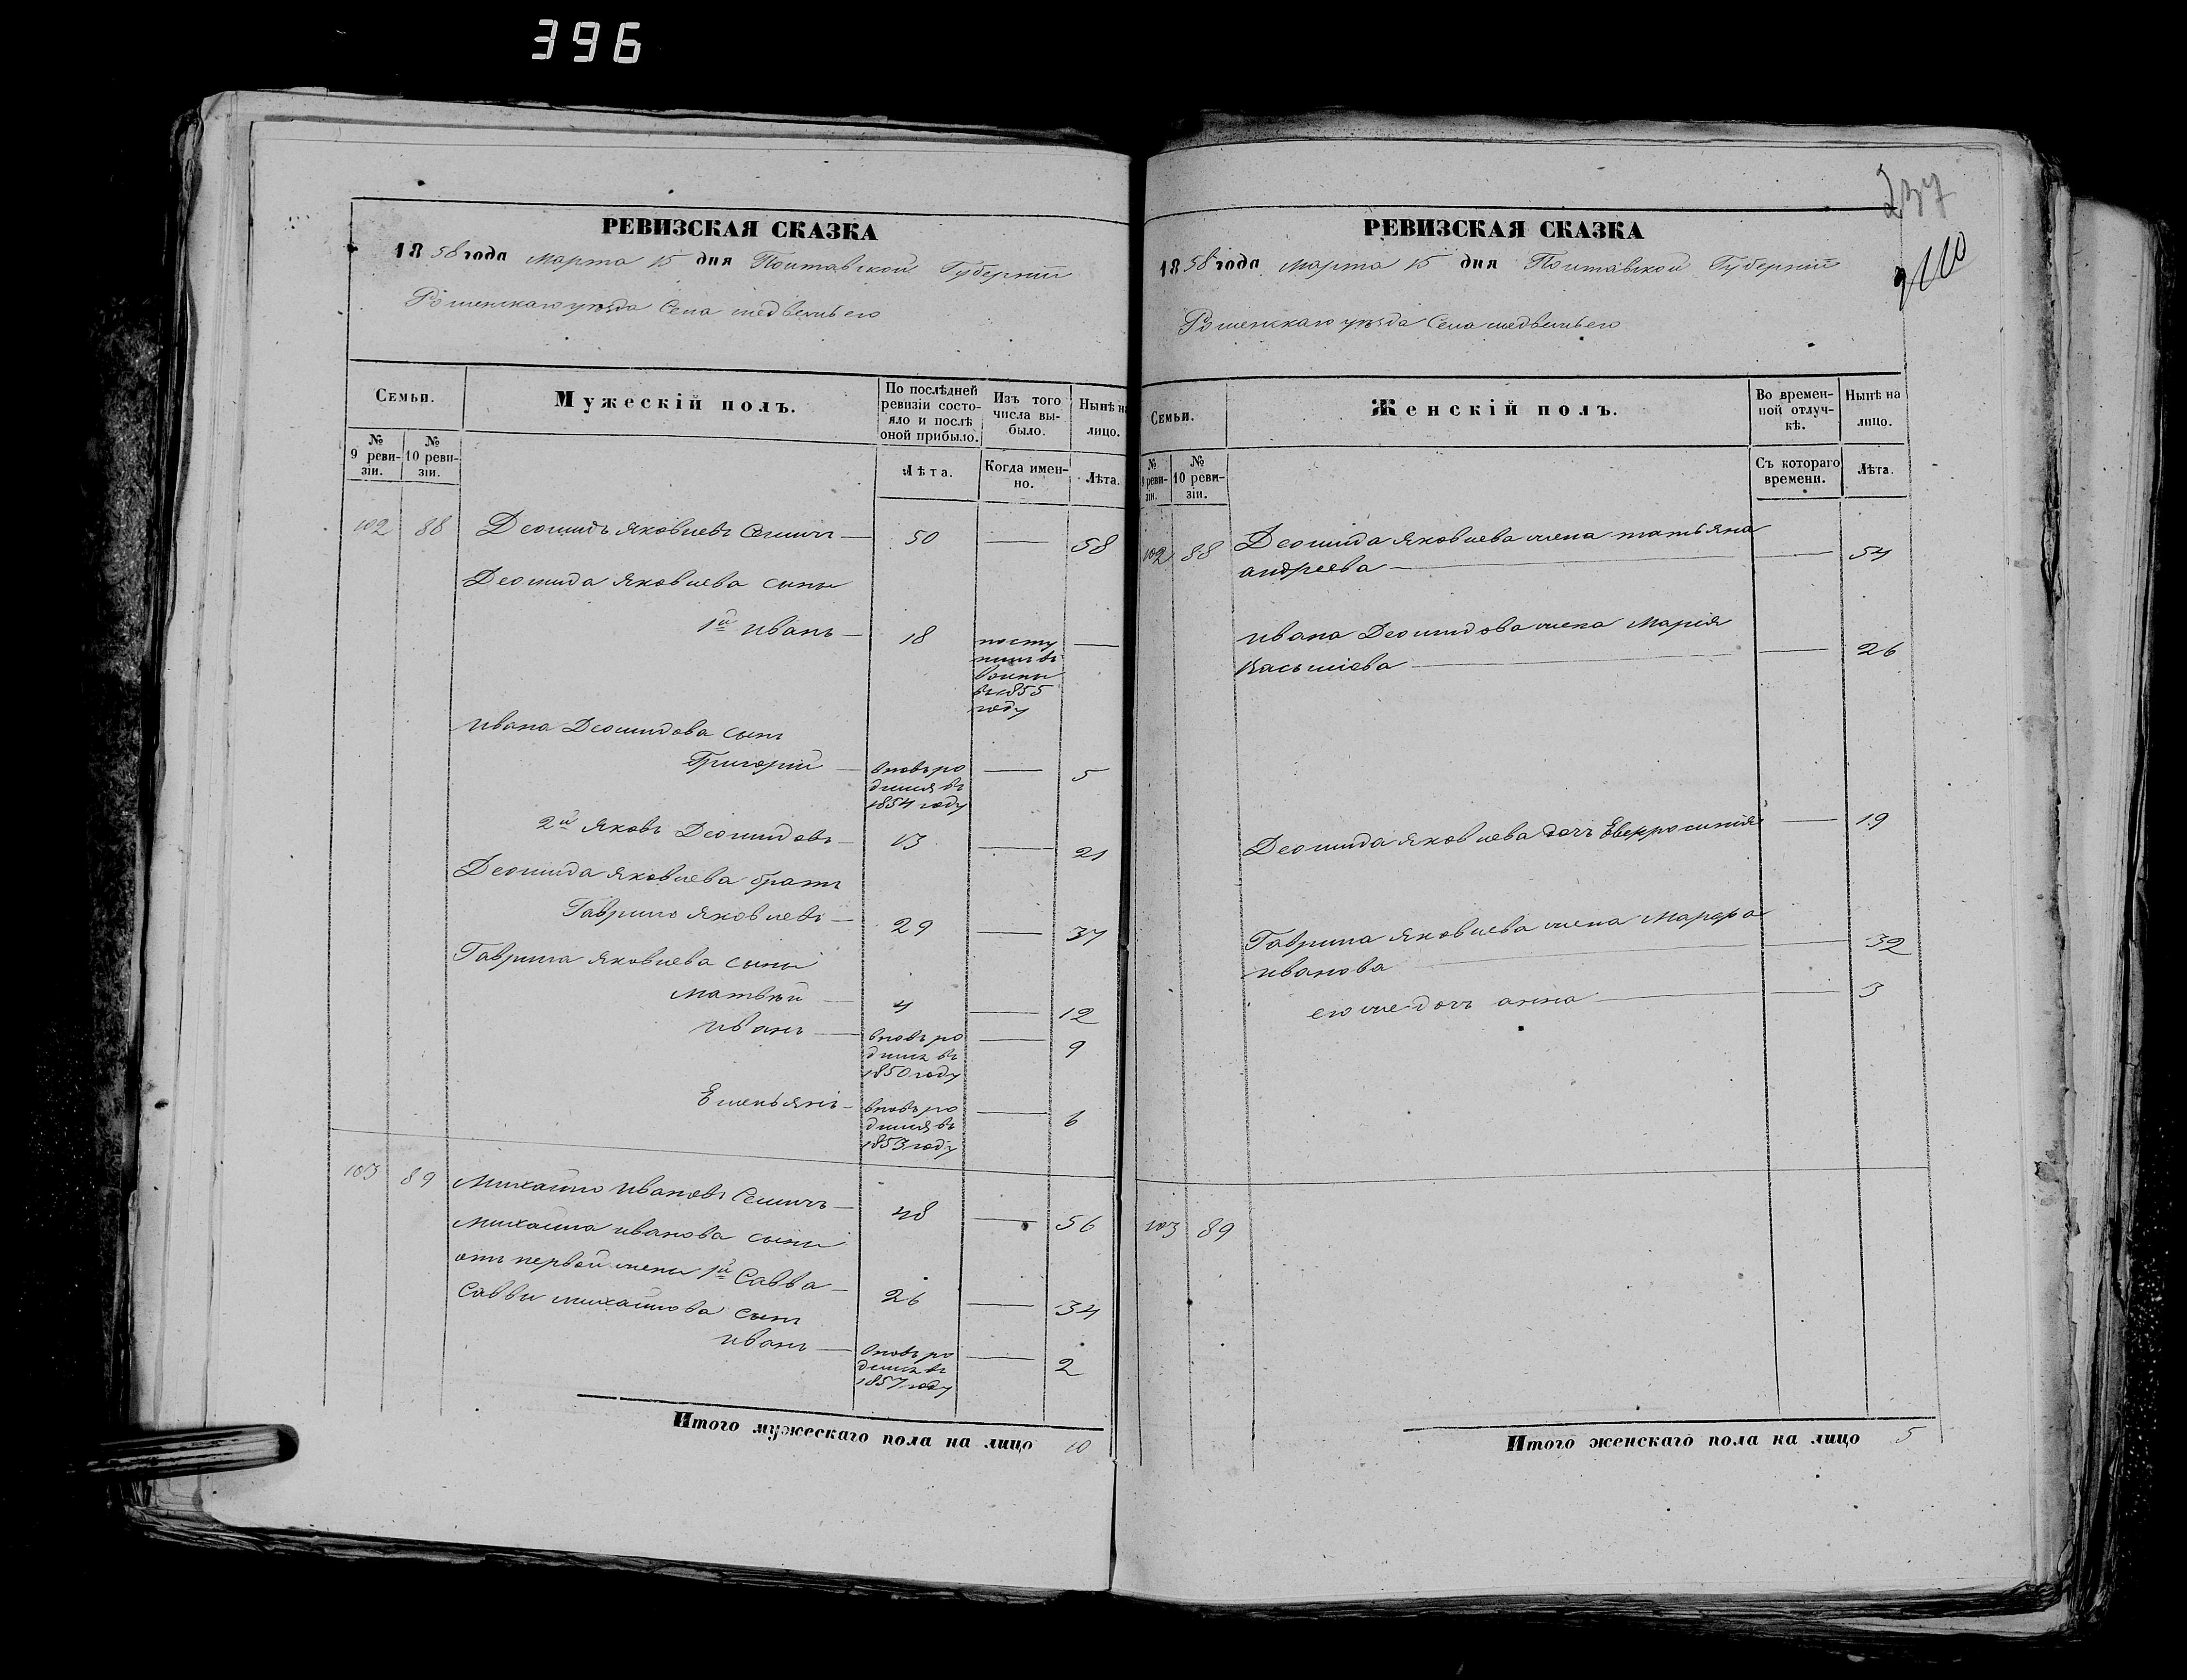 396
РЕВИЗСКАЯ СКАЗКА
1858 года Марта 15 дня Полтавской Губерніи
Роменскаго уѣзда Села медвежьего
Семьи.
Мужескій полъ.
По послѣдней ревизіи состояло и послѣ оной прибыло.
Изъ того числа выбыло.
Нынѣ на лицо.
№ 9 ревизіи.
№ 10 ревизіи.
Лѣта.
Когда именно.
Лѣта.
102 88 Деомидъ Яковлевъ Семичъ — 50 — 58
Деомида Яковлева сыны
1й Иванъ — 18 посту пилъ въ воины въ 1855 году —
Ивана Деомидова сынъ
Григорій — вновь ро дился въ 1854 году — 5
2й Яковъ Деомидовъ — 13 — 21
Деомида Яковлева братъ
Гаврило Яковлевъ — 29 — 37
Гаврила Яковлева сыны
Матвѣй — 4 — 12
Иванъ — вновь ро дилсь въ 1850 году — 9
Емельянъ — вновь ро дился въ 1853 году — 6
103 89 Михайло Ивановъ Семичъ — 48 — 56
Михайла Иванова сыны
отъ первой жены 1й Савва — 26 — 34
Саввы Михайлова сынъ
Иванъ — вновь ро дилсь въ 1857 году — 2
Итого мужескаго пола на лицо 10
237
РЕВИЗСКАЯ СКАЗКА
1858 года Марта 15 дня Полтавской Губерніи
Роменскаго уѣзда Села медвежьего
Семьи.
Женскій полъ.
Во временной отлучкѣ.
Нынѣ на лицо.
№ 9 ревизіи.
№ 10 ревизіи.
Съ котораго времени.
Лѣта.
102 88 Деомида Яковлева жена татьяна
андреева — — 54
Ивана Деомидова жена Марія
Касьянова — — 26
Деомида Яковлева дочь Евфросинія — 19
Гаврила Яковлева жена Марфа
Иванова — 32
его же дочь анна — — 3
103 89
Итого женскаго пола на лицо 5